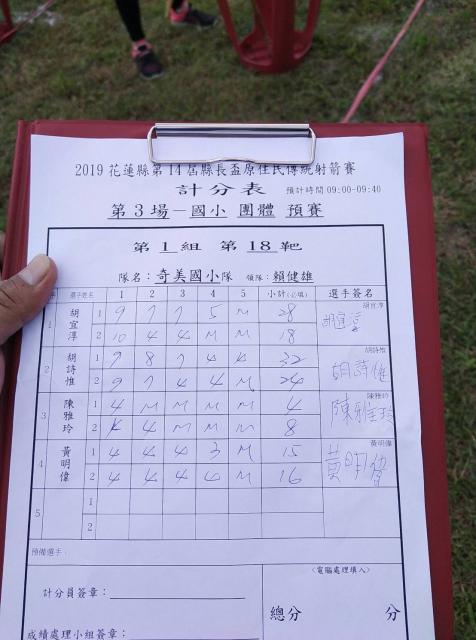 2019 花蓮縣第14屆縣長盃原住民傳統射箭賽
計分表 預計時間 09:00-09:40
第3場－國小 團體 預賽
第1組 第18靶
隊名：奇美國小隊 領隊：賴健雄
選手姓名 1 2 3 4 5 小計(必填) 選手簽名
1 胡宜淳 1 9 7 7 5 M 28 胡宜淳
2 10 4 4 M M 18 胡宜淳
2 胡詩惟 1 9 8 7 4 4 32 胡詩惟
2 9 7 4 4 M 24 胡詩惟
3 陳雅玲 1 4 M M M M 4 陳雅玲
2 4 4 M M M 8 陳雅玲
4 黃明偉 1 4 4 4 3 M 15 黃明偉
2 4 4 4 4 M 16 黃明偉
5 1
2
預備選手：
計分員簽章： (電腦處理填入)
成績處理小組簽章： 總分 分